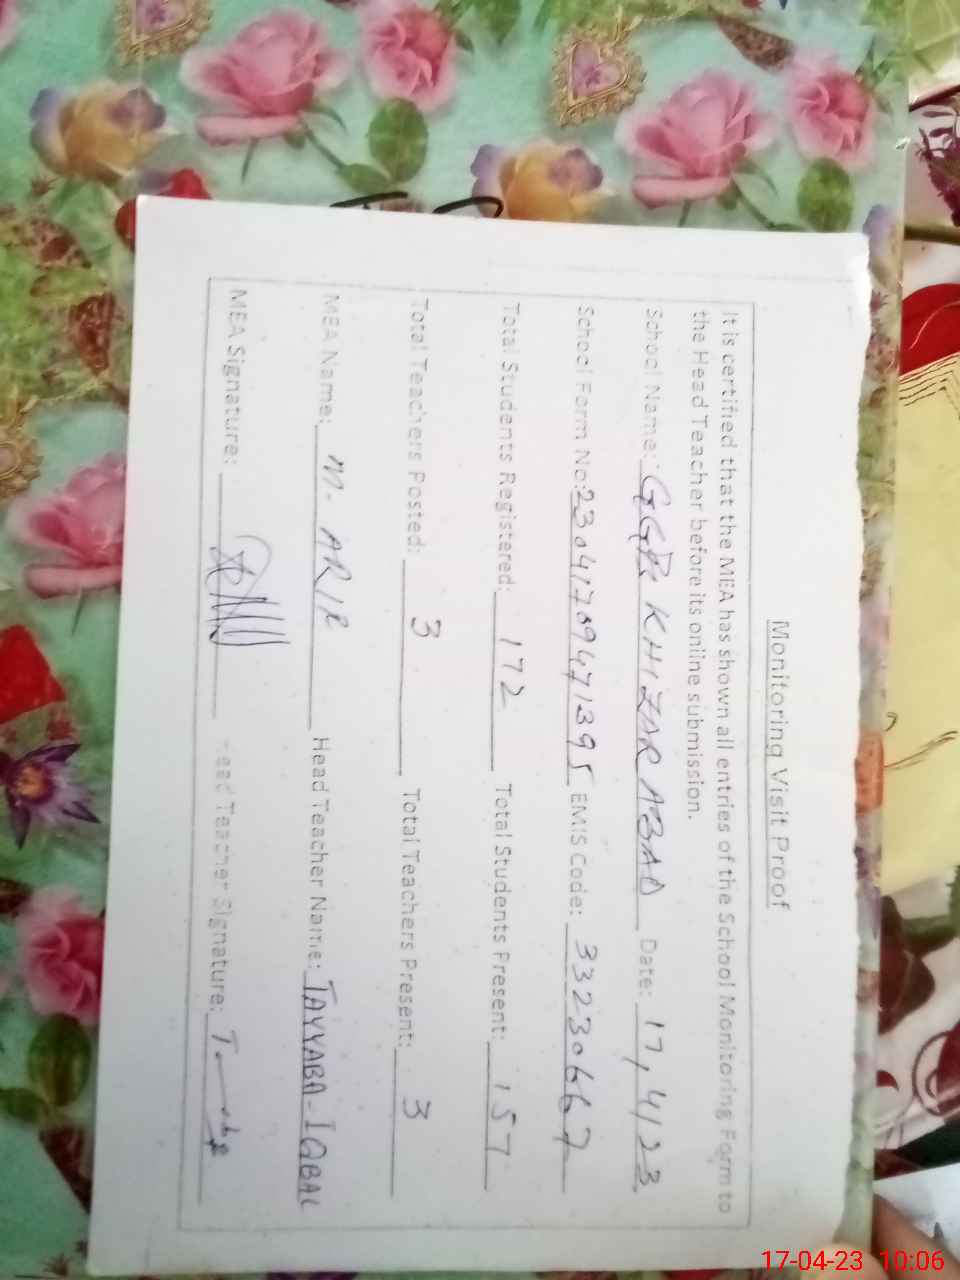 Monitoring Visit Proof
It is certified that the MEA has shown all entries of the School Monitoring Form to
the Head Teacher before its online submission.
School Name: KHIZAR ABAD Date: 17/4/23
School Form No: 23041709471395 EMIS Code: 33230667
Total Students Registered: 172 Total Students Present: 157
Total Teachers Posted: 3 Total Teachers Present: 3
MEA Name: M. Head Teacher Name: TAYYABA-IQBAL
MEA Signature: Head Teacher Signature:
17-04-23 10:06